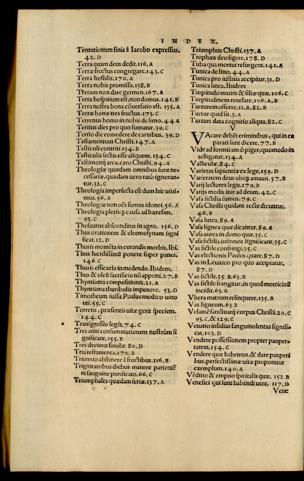 INDEX.
Tentationum finis à Iacobo expressus,
42.D
Terra quam deus dedit.116.A
Terræ fructus congregare.143.C
Terra hostilis.170.A
Terra nobis promissa.158.B
Terram non dare germen.167.A
Terra hospitium est, non domus.141.B
Terra nostra bona coversatio est. 155.A
Terra bona tres fructus.173.C
Terrenus homo in nobis de limo.44.A
Tertius dies pro quo sumatur.39.C
Tertio die comedere de carnibus.39.D
Testamentum Christi.147.A
Testiculi contriti 134.B
Testicula sectis esse aliquem.134.C
Testamenti arca caro Christi.94.A
Theologiæ quædam omnibus sunt necessaria:
quædam tacitò ignorantur.
32.C
Theologia imperfecta est dum hic uiuimus.
56.A
Theologiæ non oēs sumus idonei.56.A
Theologia pleriq; causa ad hæresim.
93.C
Thesaurus absconditus in agro. 156.D
Thus orationem & elemosynam significat.
12.D
Thuris
Thus lucidissimū ponere super panes,
146.C
Thuris efficacia in medendo. Ibidem.
Thus & oleū sacrificio nō apponi.27.B
Thymiama compositionis.21.A
Thymiama thuribulis imponere. 53.D
Timotheum iussit Paulus modico uino
uti.55.C
Torrens, præsentis uitæ gerit speciem.
144.C
Transgressio legis.74.C
Tres anni consummationem nostram significant.
155.B
Tres decimæ similæ. 80.D
Tria testamenta.170.B
Triennio abstinere à fructibus.116.B
Triginta tribus diebus manere parientem
in sanguine purificato.66.C
Triumphales quædam scriæ.137.A
Triumphus Christi.157.A
Trophæa deo figere.178.D
Tuba qua mortui resurgent.141.A
Tunica de lino. 44.A
Tunica pro iustitia accipitur.31.D
Tunica linea, Ibidem
Turpitudo matris & filiæ quæ.106.C
Turpitudinem reuelare.106.A,B
Turturem offerre.8.B. 11.B
Turtur quid sit.3.A
Turtum data cognitio aliqua.82.C
V
VAcare debēt criminibus, qui in ea
parati sunt dicere. 77.B
Vide ad formicam ô piger, quomodo intelligatur.
114.A
Vallicula.84.C
Varietas sapientiæ ex lege.159.D
Varietatem deus ubiq; amauit.57.B
Varij lectores legis.179.B
Varijs modis itur ad deum.42.C
Vasa fictilia sumus.79.C
Vasa Christi quidam esse dicuntur,
46.B
Vasa lutea.89.A
Vasa lignea quæ dicatur.89.A
Vasa aurea in domo quæ. 35.C
Vasa fictilia infirmos significant.35.C
Vas fictile confringi.35.C
Vas electionis Paulus quare.87.D
Vas in Leuitico pro quo accipiatur,
87.D
Vas fictile.35.B.63.B
Vas fictile frangatur, in quod morticini
incidit.63.B
Vbera matrum relinquere.155.B
Vas ligneum.63.B
Velamē sanctuarij corpus Christi.20.C
95.C.& 129.C
Venatio insidias sanguinolentas significat.
103.D
Vendere possessionem propter paupertatem.
154.C
Vendere quæ habemus, & dare pauperibus,
perfectissimæ uitæ proponitur
exemplum. 140.A
Vēditio & emptio spiritalis quæ. 152.B
Venefici qui sunt habendi uere. 117.D
Vene